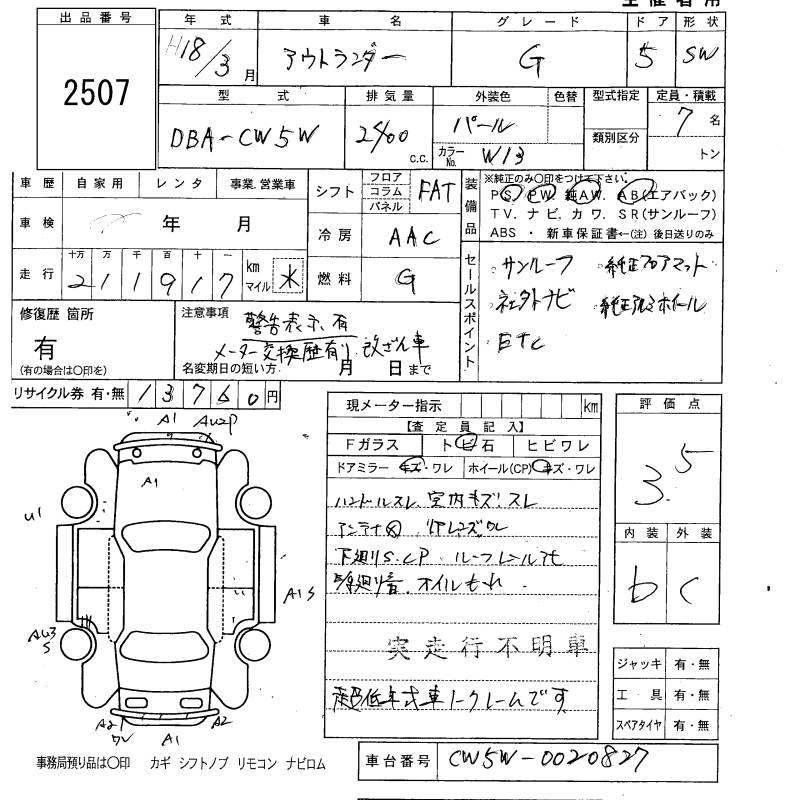 出品番号
2507
年式
H18/3月
車名
アウトランダー
グレード
G
ドア
5
形状
SW
型式
DBA-CW5W
排気量
2400
c.c.
外装色
パール
色替
カラーNo.
W13
型式指定
類別区分
定員・積載
7名
トン
車歴 自家用 レンタ 事業.営業車
車検 年 月
走行
十万 万 千 百 十 一
211917
km
マイル
シフト
フロア
コラム
パネル
FAT
冷房
AAC
燃料
G
装備品
※純正のみ〇印をつけて下さい。
PS. PW. 純AW. AB(エアバック)
TV. ナビ. カワ. SR(サンルーフ)
ABS ・ 新車保証書←(注) 後日送りのみ
セールスポイント
。サンルーフ 。純正フロアマット
。社外ナビ 。純正アルミホイール
。ETC
修復歴 箇所
有
(有の場合は〇印を)
注意事項
警告表示.有
メーター交換歴有り 改ざん車
名変期日の短い方. 月 日まで
リサイクル券 有・無
13760円
A1
AU2P
A1
U1
A1S
AU3
S
A2
A2
A1
現メーター指示 km
【査定員記入】
Fガラス トビ石 ヒビワレ
ドアミラー キズ・ワレ ホイール(CP) キズ・ワレ
ハンドルスレ 室内キズ スレ
下廻りS.CP ルーフレール
オイルもれ.
実走行不明車
超低年式車ノークレームです
評価点
3.5
内装
b
外装
C
ジャッキ 有・無
工具 有・無
スペアタイヤ 有・無
事務局預り品は〇印 カギ シフトノブ リモコン ナビロム
車台番号
CW5W-0020827